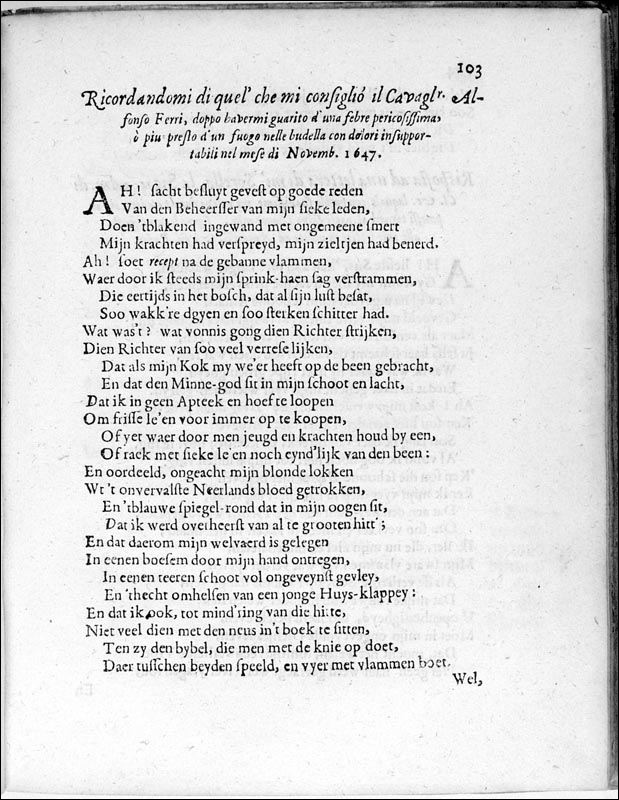 103
Ricordandomi di quel' che mi consiglió il Cavaglr. Al-
fonso Ferri, doppo havermi guarito d'una febre pericosissima,
ò piu presto d'un fuogo nelle budella con dolori insuppor-
tabili nel mese di Novemb. 1647.
AH! sacht besluyt gevest op goede reden
Van den Beheersser van mijn sieke leden,
Doen 'tblakend ingewand met ongemeene smert
Mijn krachten had verspreyd, mijn zieltjen had benerd.
Ah! soet recept na de gebanne vlammen,
Waer door ik steeds mijn sprink-haen sag verstrammen,
Die eertijds in het bosch, dat al sijn lust besat,
Soo wakk're dgyen en soo sterken schitter had.
Wat was't? wat vonnis gong dien Richter strijken,
Dien Richter van soo veel verrese lijken,
Dat als mijn Kok my we'er heeft op de been gebracht,
En dat den Minne-god sit in mijn schoot en lacht,
Dat ik in geen Apteek en hoef te loopen
Om frisse le'en voor immer op te koopen,
Of yet waer door men jeugd en krachten houd by een,
Of raek met sieke le'en noch eynd'lijk van den been:
En oordeeld, ongeacht mijn blonde lokken
Wt 't onvervalste Neerlands bloed getrokken,
En 'tblauwe spiegel-rond dat in mijn oogen sit,
Dat ik werd overheerst van al te grooten hitt';
En dat daerom mijn welvaerd is gelegen
In eenen boesem door mijn hand ontregen,
In eenen teeren schoot vol ongeveynst gevley,
En 'thecht omhelsen van een jonge Huys-klappey:
En dat ik ook, tot mind'ring van die hitte,
Niet veel dien met den neus in't boek te sitten,
Ten zy den bybel, die men met de knie op doet,
Daer tusschen beyden speeld, en vyer met vlammen boet.
Wel,